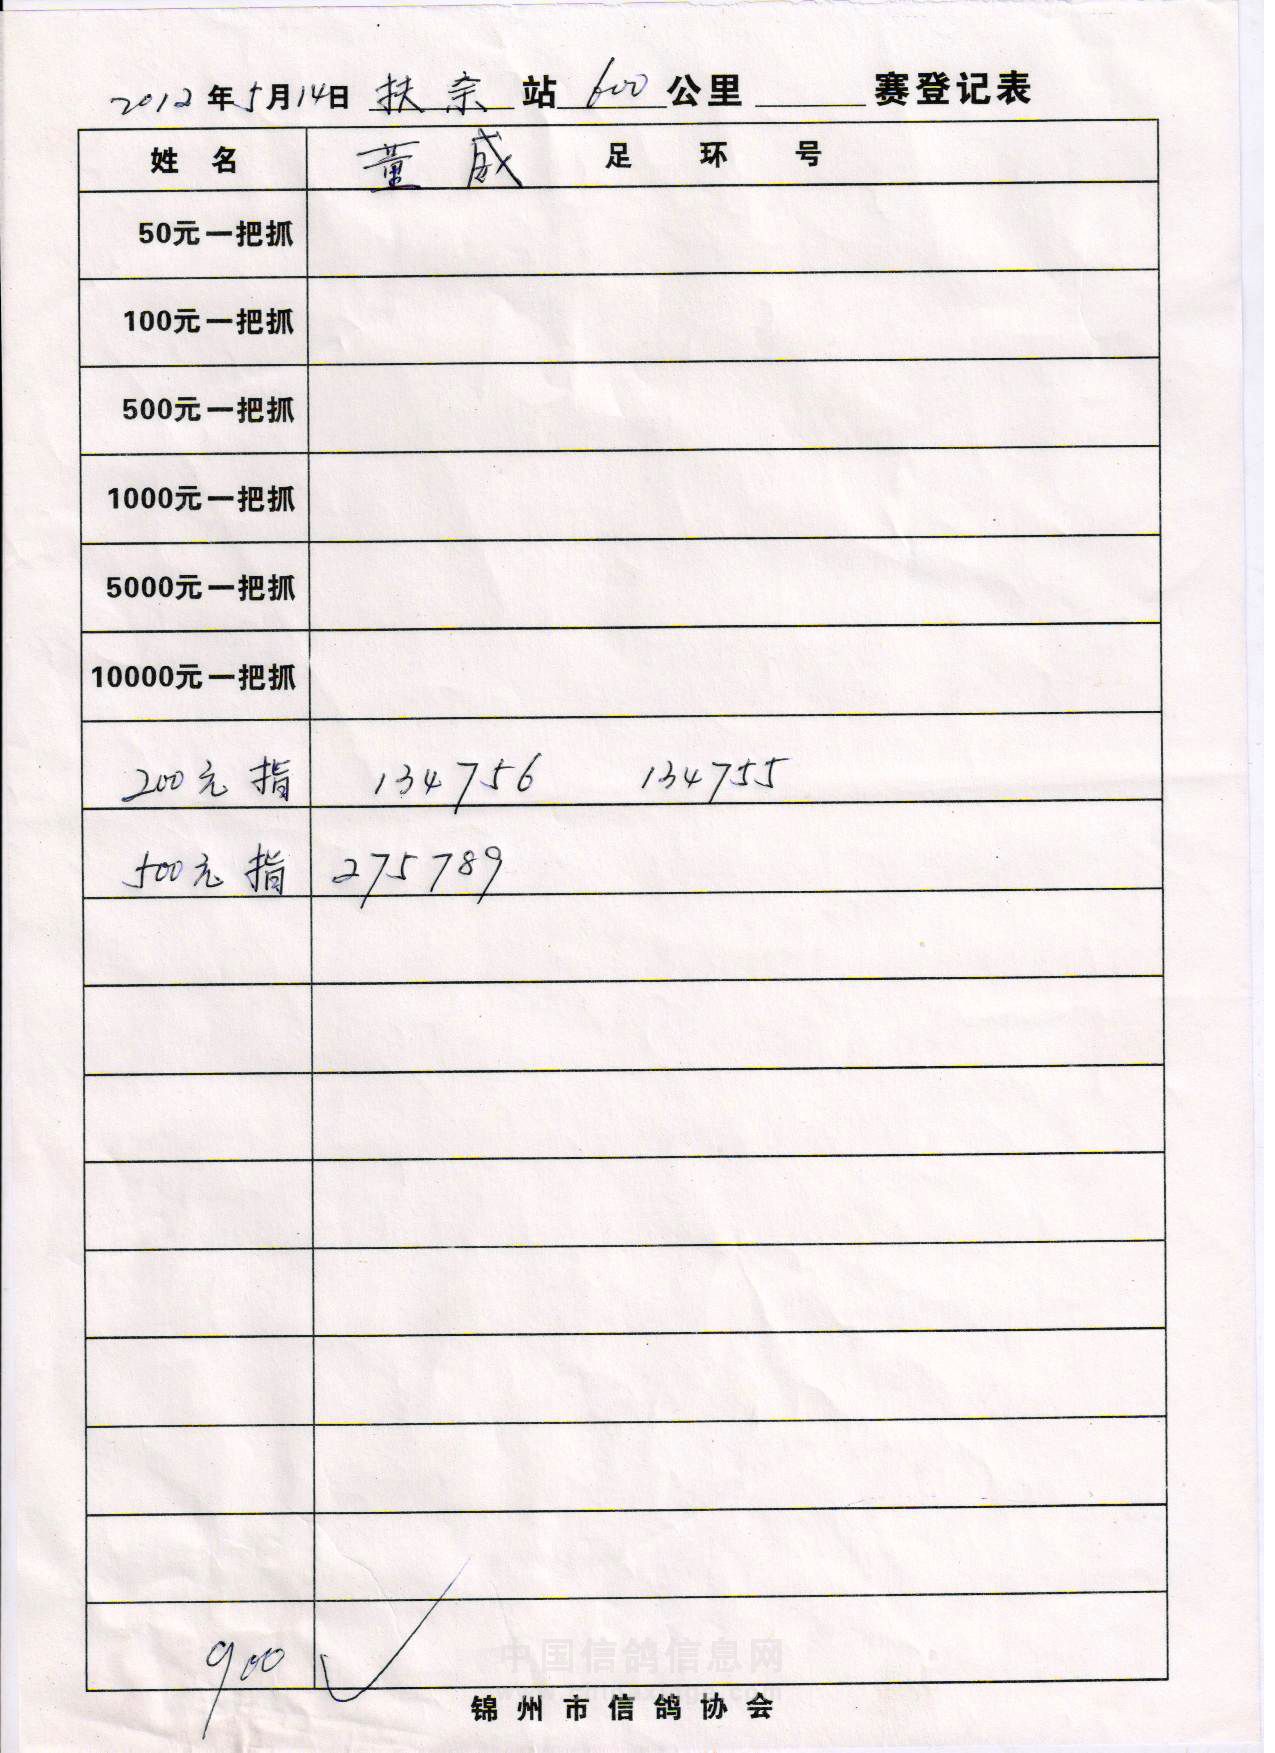 2012年5月14日 扶余 站 600 公里 赛登记表
姓 名 董 威 足 环 号
50元一把抓
100元一把抓
500元一把抓
1000元一把抓
5000元一把抓
10000元一把抓
200元 指 134756 134755
500元 指 275789
900
中国信鸽信息网
锦州市信鸽协会